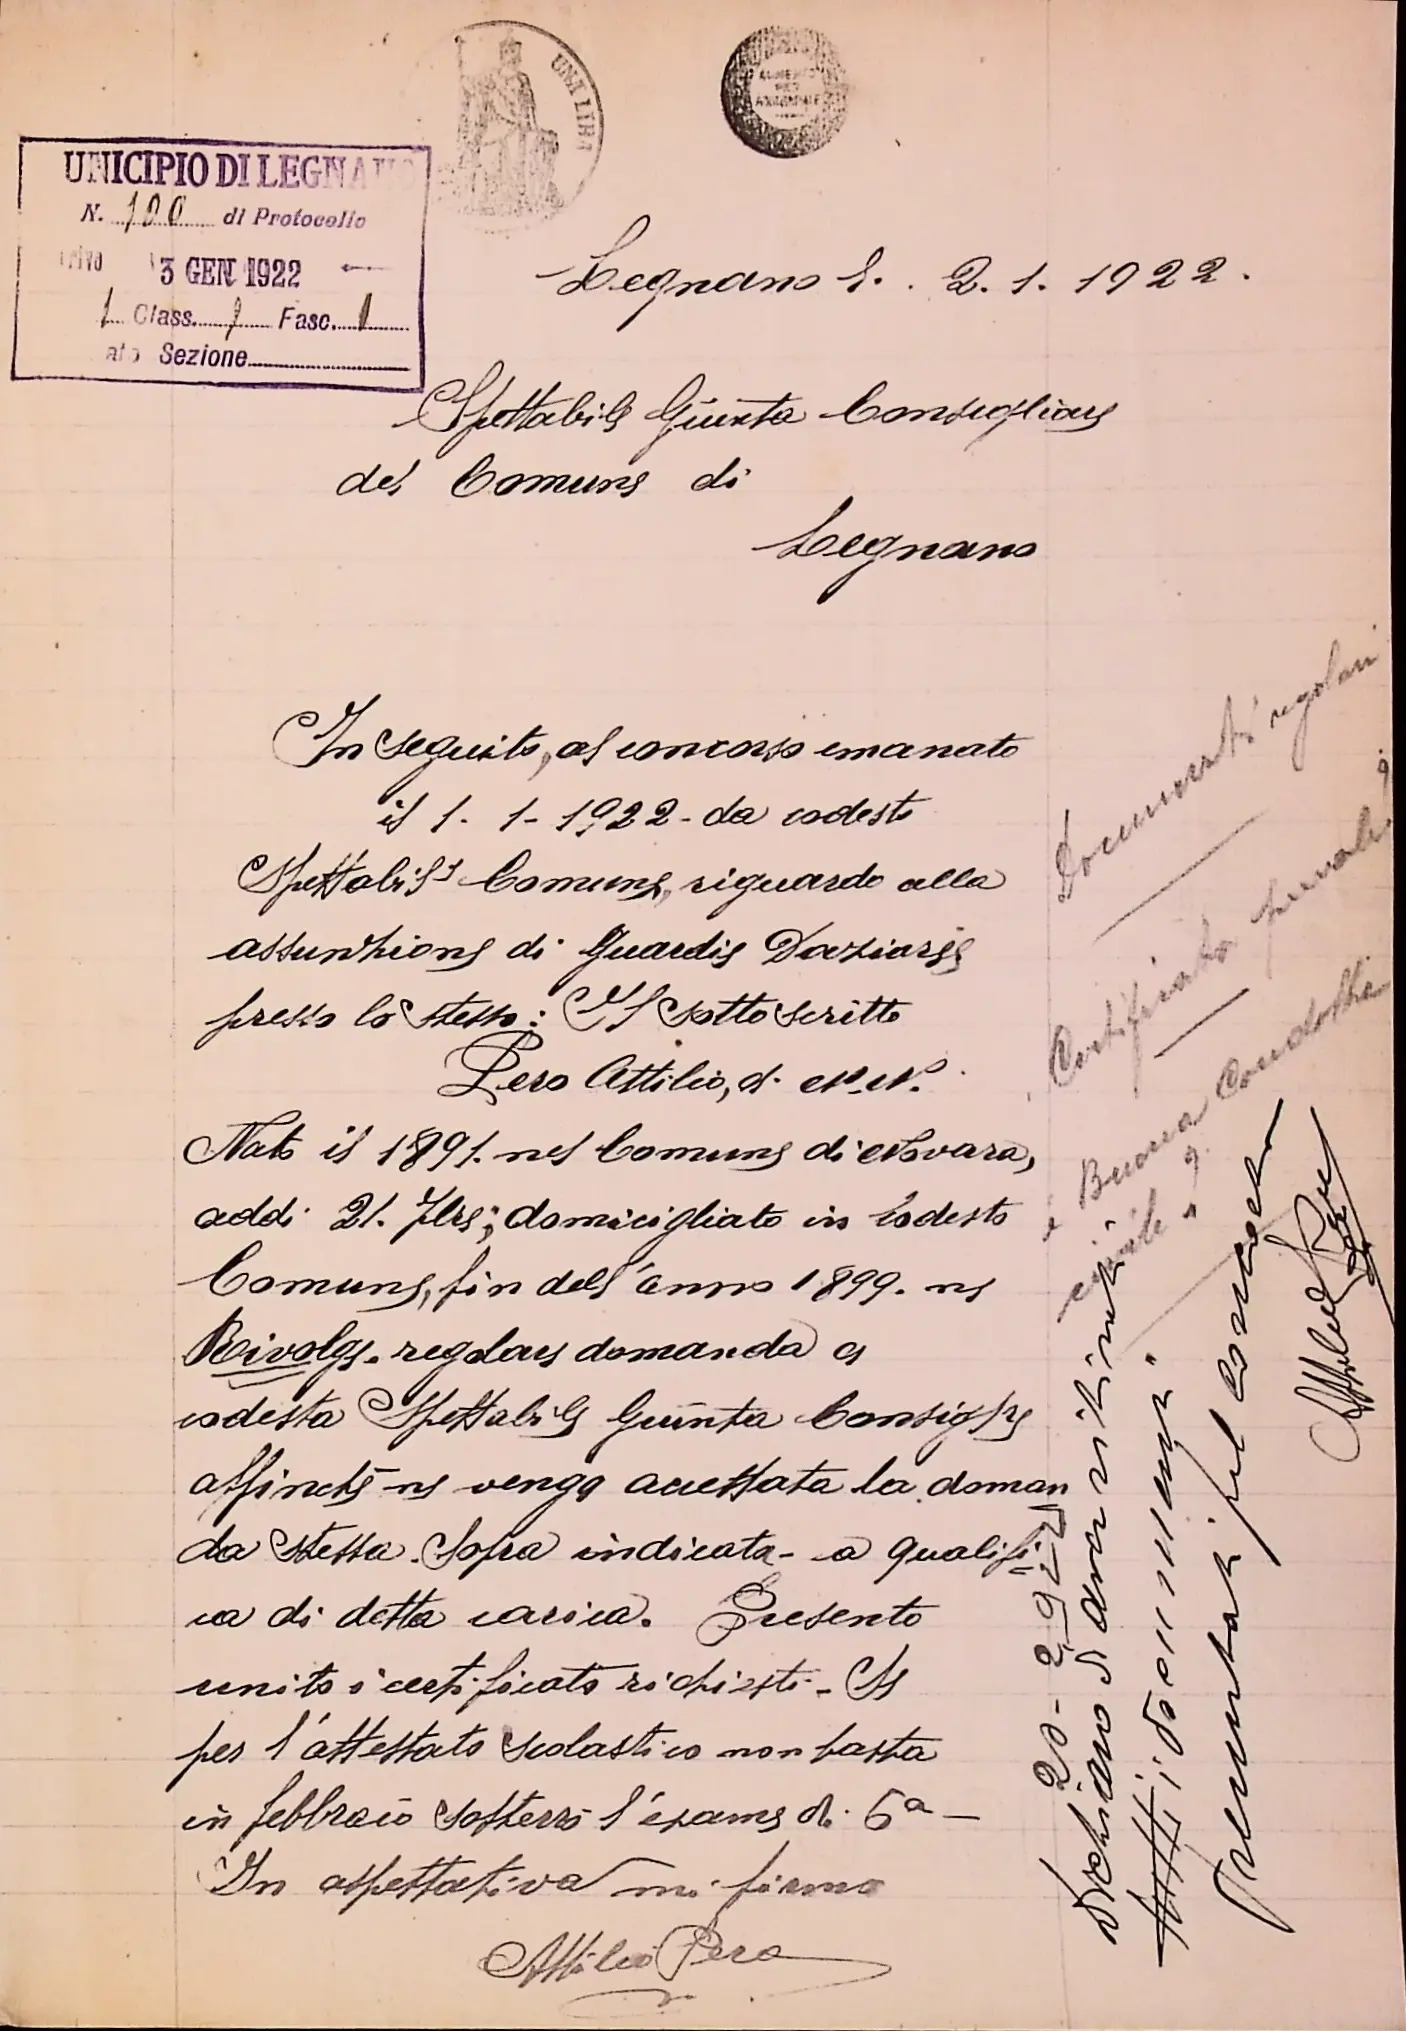 UNA LIRA
AUMENTO
UNICIPIO DI LEGNANO
N. 100 di Protocollo
3 GEN 1922
1 Class. 7 Fasc. 1
Sezione
Legnano li. 2. 1. 1922.
Spettabile Giunta Consigliare
del Comune di
Legnano
In seguito, al concorso emanato
il 1. 1- 1922- da codesto
Spettabile Comune, riguardo alla
assunzione di Guardie Daziarie
presso lo stesso: Il sottoscritto
Pero Attilio, di N.N.
Nato il 1891. nel Comune di Novara,
addi 21. 7bre; domicigliato in codesto
Comune, fin dell'anno 1899. ne
Rivolge. regolare domanda a
codesta Spettabile Giunta Consigre
affinchè ne venga accettata la doman
da stessa. Sopra indicata- a qualifi
ca di detta carica. Presento
unito i certificato richiesti. Se
per l'attestato scolastico non basta
in febbraio sosterrò l'esame di 6a-
In aspettativa mi firmo
Attilio Pero
Documenti regolari
Certificato penale?
" Buona Condotta
civile "?
20- 2- 922
Dichiaro d'aver ritirati
i documenti
Presentati pel Concorso
Attilio Pero